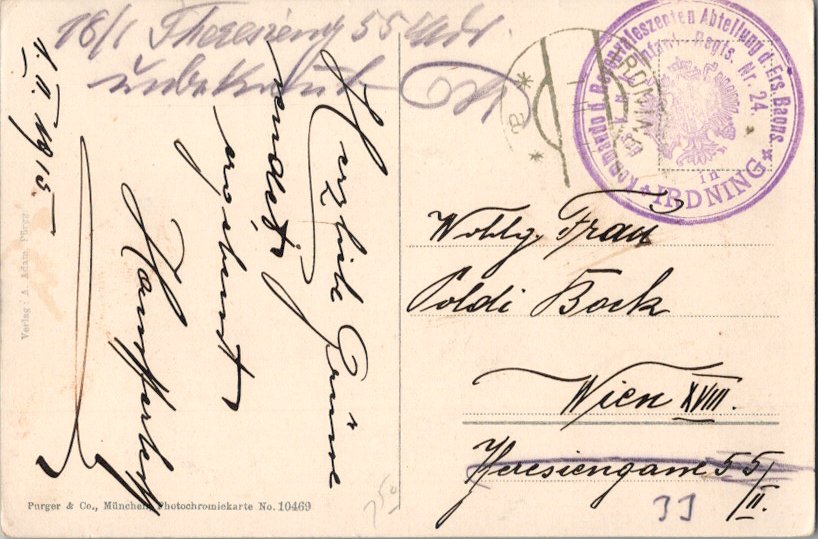 18/I Theresieng 55
unbekannt
Kommando d. Rekonvaleszenten Abteilung d. Ers. Baons.
k. u. k. Infant. Regts. Nr. 24.
in
IRDNING
IRDNING
a
1. II. 1915
Herzliche Grüße
sendet
ergebenst
Wohlg. Frau
Poldi Bock
Wien XVIII.
Theresiengasse 55/II.
33
750
Verlag: A. Adam Pürgg
Purger & Co., München, Photochromiekarte No. 10469